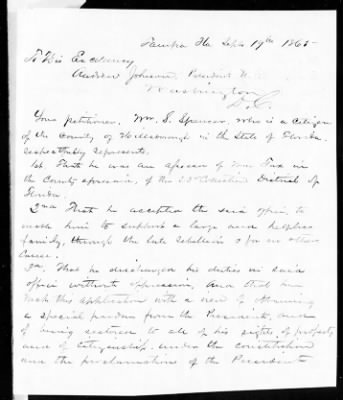 Tampa Fla Sept 19th 1865
To His Excellency
Andrew Johnson, President U.
Washington
D.C.
Your petitioner, Wm. S. Spencer, who is a Citizen
of the County of Hillsborough in the State of Florida
respectfully represents.
1st. That he was an assessor of War Tax in
the County aforesaid, of the Collection District of
Florida.
2nd That he accepted the said office, to
enable him to support a large and helpless
family, through the late rebellion & for no other
Cause.
3rd. That he discharged his duties in said
office without oppression, and that he
makes this application with a view of obtaining
a special pardon from the President, and
of being restored to all of his rights of property
and of citizenship under the constitution
and the proclamation of the President